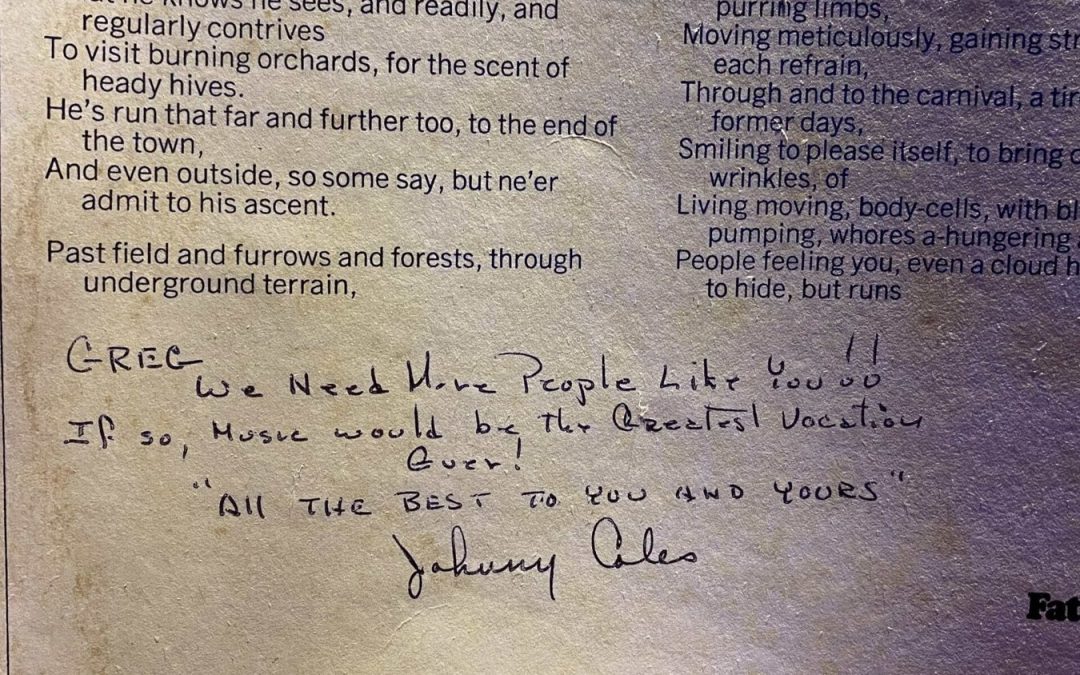 he knows he sees, and readily, and
regularly contrives
To visit burning orchards, for the scent of
heady hives.
He's run that far and further too, to the end of
the town,
And even outside, so some say, but ne'er
admit to his ascent.
Past field and furrows and forests, through
underground terrain,
purring limbs,
Moving meticulously, gaining str
each refrain,
Through and to the carnival, a tir
former days,
Smiling to please itself, to bring
wrinkles, of
Living moving, body-cells, with bl
pumping, whores a-hungering
People feeling you, even a cloud h
to hide, but runs
GREG
We Need More People Like You!!
If so, Music would be the Greatest Vocation
Ever!
"All THE BEST TO YOU AND YOURS"
Johnny Coles
Fat